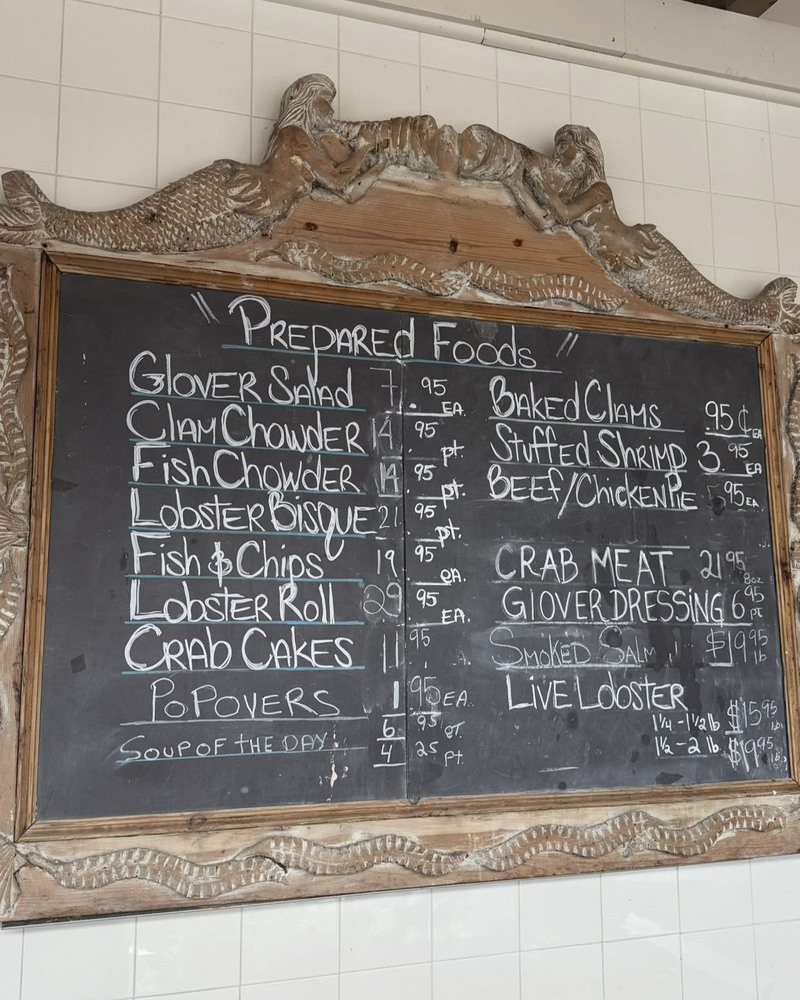 " Prepared Foods "
Glover Salad 7.95 EA.
Clam Chowder 14.95 pt.
Fish Chowder 14.95 pt.
Lobster Bisque 21.95 pt.
Fish & Chips 19.95 ea.
Lobster Roll 29.95 EA.
Crab Cakes 11.95
PoPovers 1.95 EA.
Soup of the Day 6.95 QT.
4.25 pt.
Baked Clams .95 ¢ EA
Stuffed Shrimp 3.95 EA
Beef/Chicken Pie 95 EA.
Crab Meat 21.95 8oz
Glover Dressing 6.95 PT
Smoked Salm $19.95 lb
Live Lobster
1¼-1½ lb $15.95 lb.
1½-2 lb $19.95 lb.